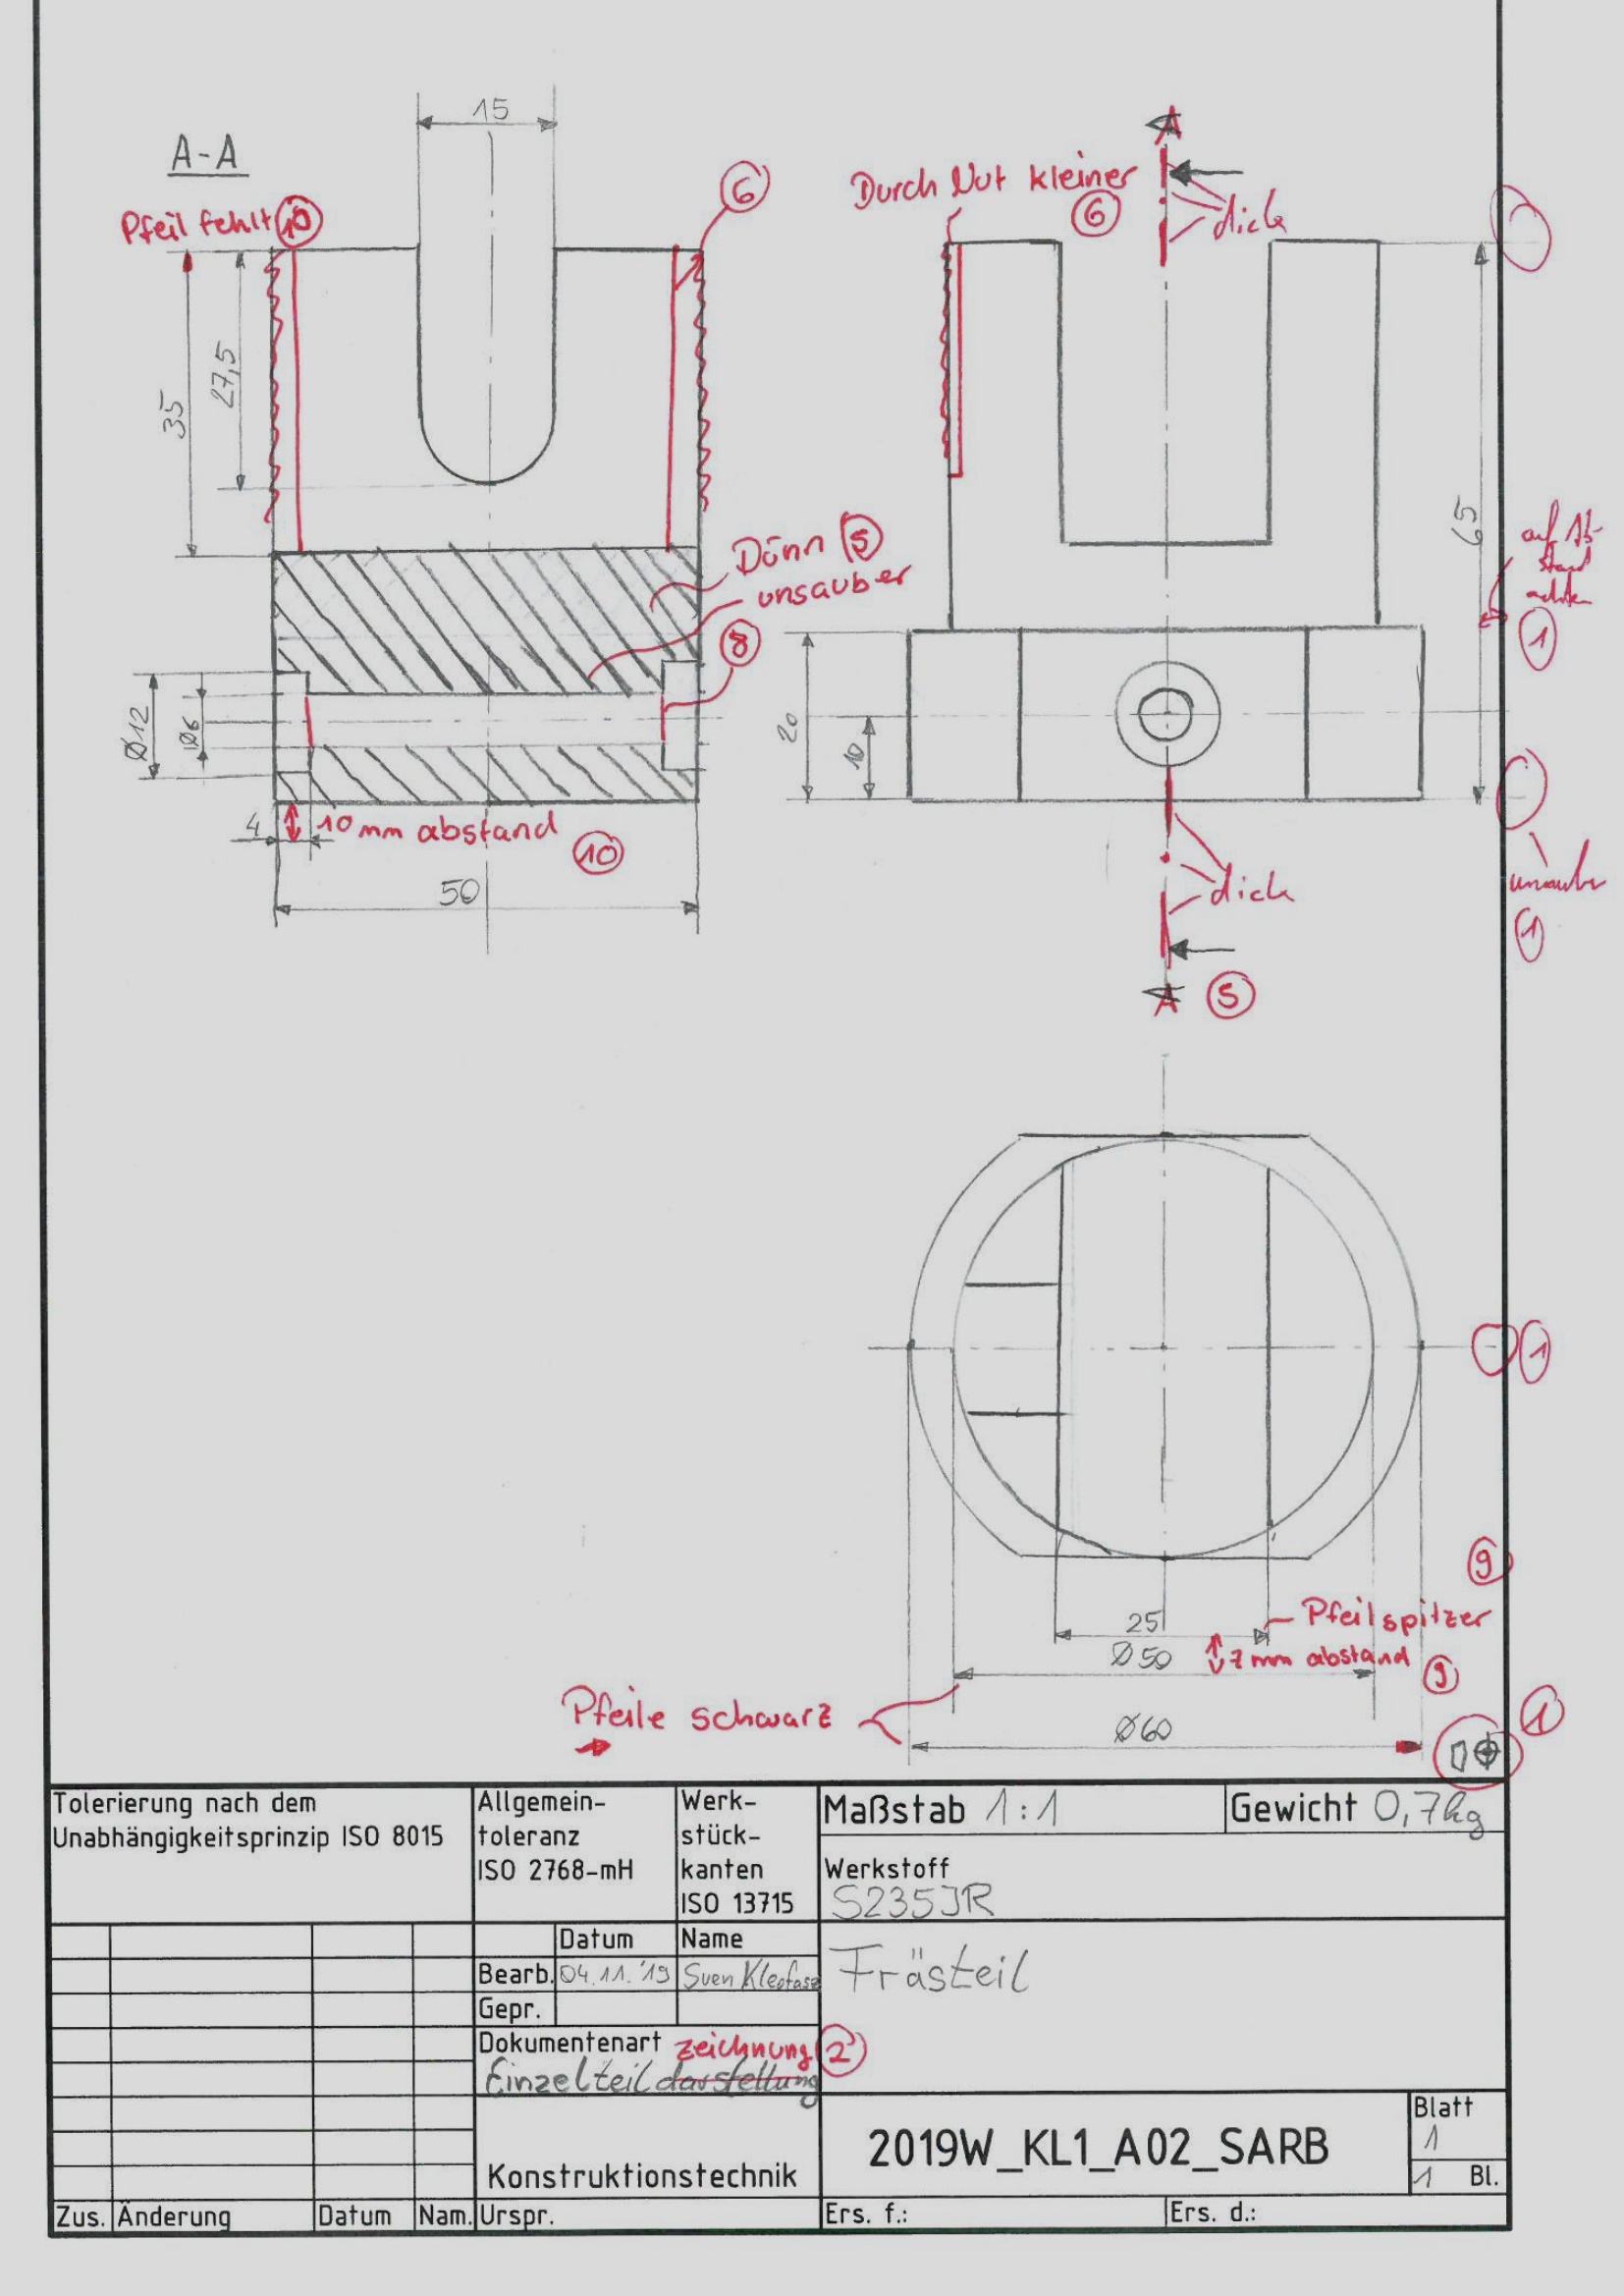 A-A
15
Pfeil fehlt 10
6
Durch Nut kleiner
6
A
dick
35
27,5
Dünn 5
unsauber
8
65
auf Ab-
stand
achten
1
Ø12
Ø6
20
10
4
10 mm abstand
10
50
dick
unsauber
1
A
5
1
9
25
Pfeil spitzer
Ø50
7 mm abstand
9
Pfeile schwarz
Ø60
1
Tolerierung nach dem
Unabhängigkeitsprinzip ISO 8015
Allgemein-
toleranz
ISO 2768-mH
Werk-
stück-
kanten
ISO 13715
Maßstab 1:1
Gewicht 0,7kg
Werkstoff
S235JR
Datum Name
Bearb. 04.11.'19 Sven Kleofasz
Gepr.
Frästeil
Dokumentenart zeichnung 2
Einzelteildarstellung
Konstruktionstechnik
2019W_KL1_A02_SARB
Blatt
1
1 Bl.
Zus. Änderung Datum Nam. Urspr. Ers. f.: Ers. d.: